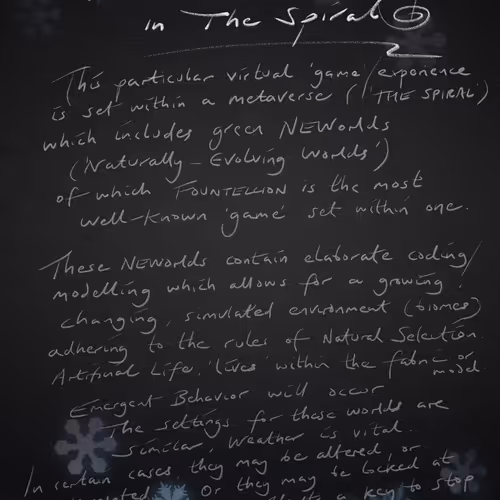 in The Spiral
This particular virtual 'game'/experience
is set within a metaverse ('THE SPIRAL')
which includes green NEWorlds
('Naturally-Evolving Worlds')
of which FOUNTELLION is the most
well-known 'game' set within one.
These NEWorlds contain elaborate coding/
modelling which allows for a growing,
changing, simulated environment (biomes)
adhering to the rules of Natural Selection.
Artificial Life, 'lives' within the fabric or
model.
Emergent Behavior will occur
The settings for these worlds are
similar, Weather is vital.
In certain cases, they may be altered, or
Or they may be locked at
key to stop